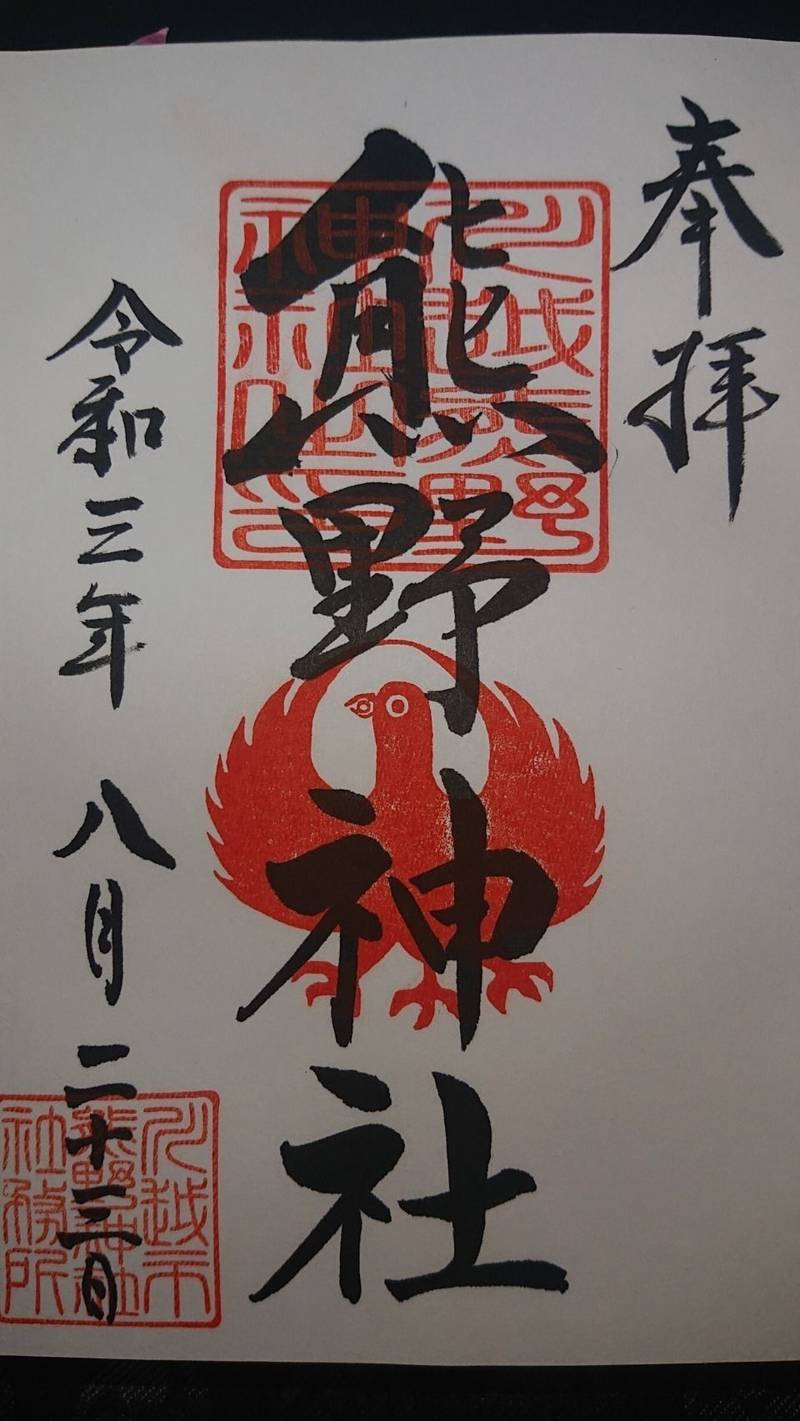 奉拝
川越熊野
神社之印
熊野神社
令和三年 八月二十三日
川越市
熊野神社
社務所